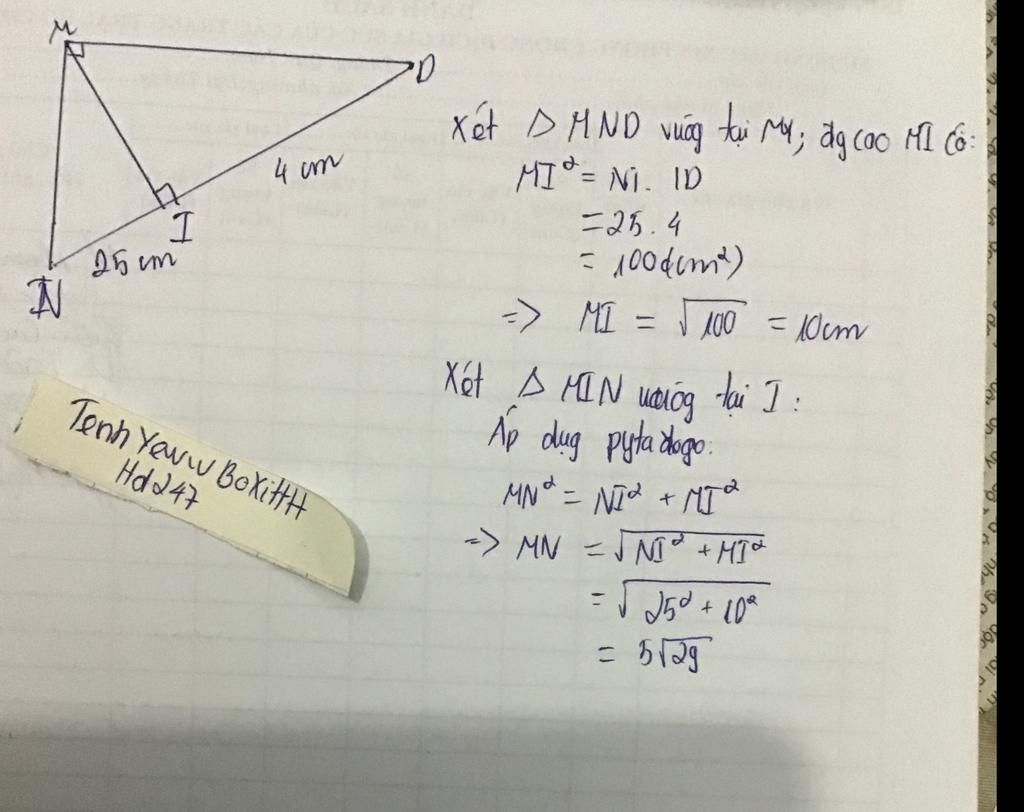 M
D
4 cm
I
25 cm
N
Xét Δ MND vuôg tại M; đg cao MI có:
MI² = NI. ID
= 25 . 4
= 100 (cm²)
=> MI = √100 = 10cm
Xét Δ MIN vuôg tại I:
Áp dụg pytadogo:
MN² = NI² + MI²
=> MN = √NI² + MI²
= √25² + 10²
= 5√29
TenhYewwBoXiHH
Hd247